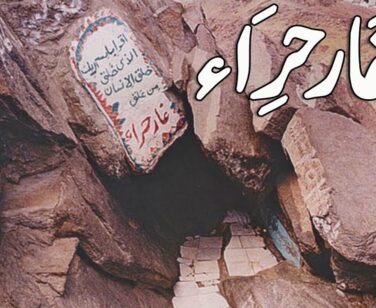 غَار حِرَاء
اقرا باسم ربك
الذى خلق
خلق الانسان
من علق
غار حراء